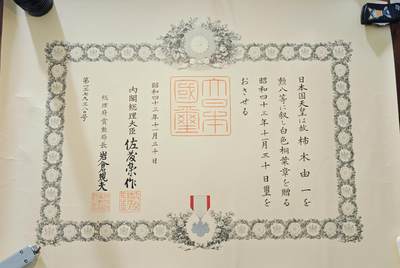 日本国天皇は故柿木由一を
勲八等に叙し白色桐葉章を贈る
昭和四十三年十一月三十日璽を
おさせる
大日本
國璽
昭和四十三年十一月三十日
内閣総理大臣 佐藤榮作
総理府賞勲局長 岩倉規夫